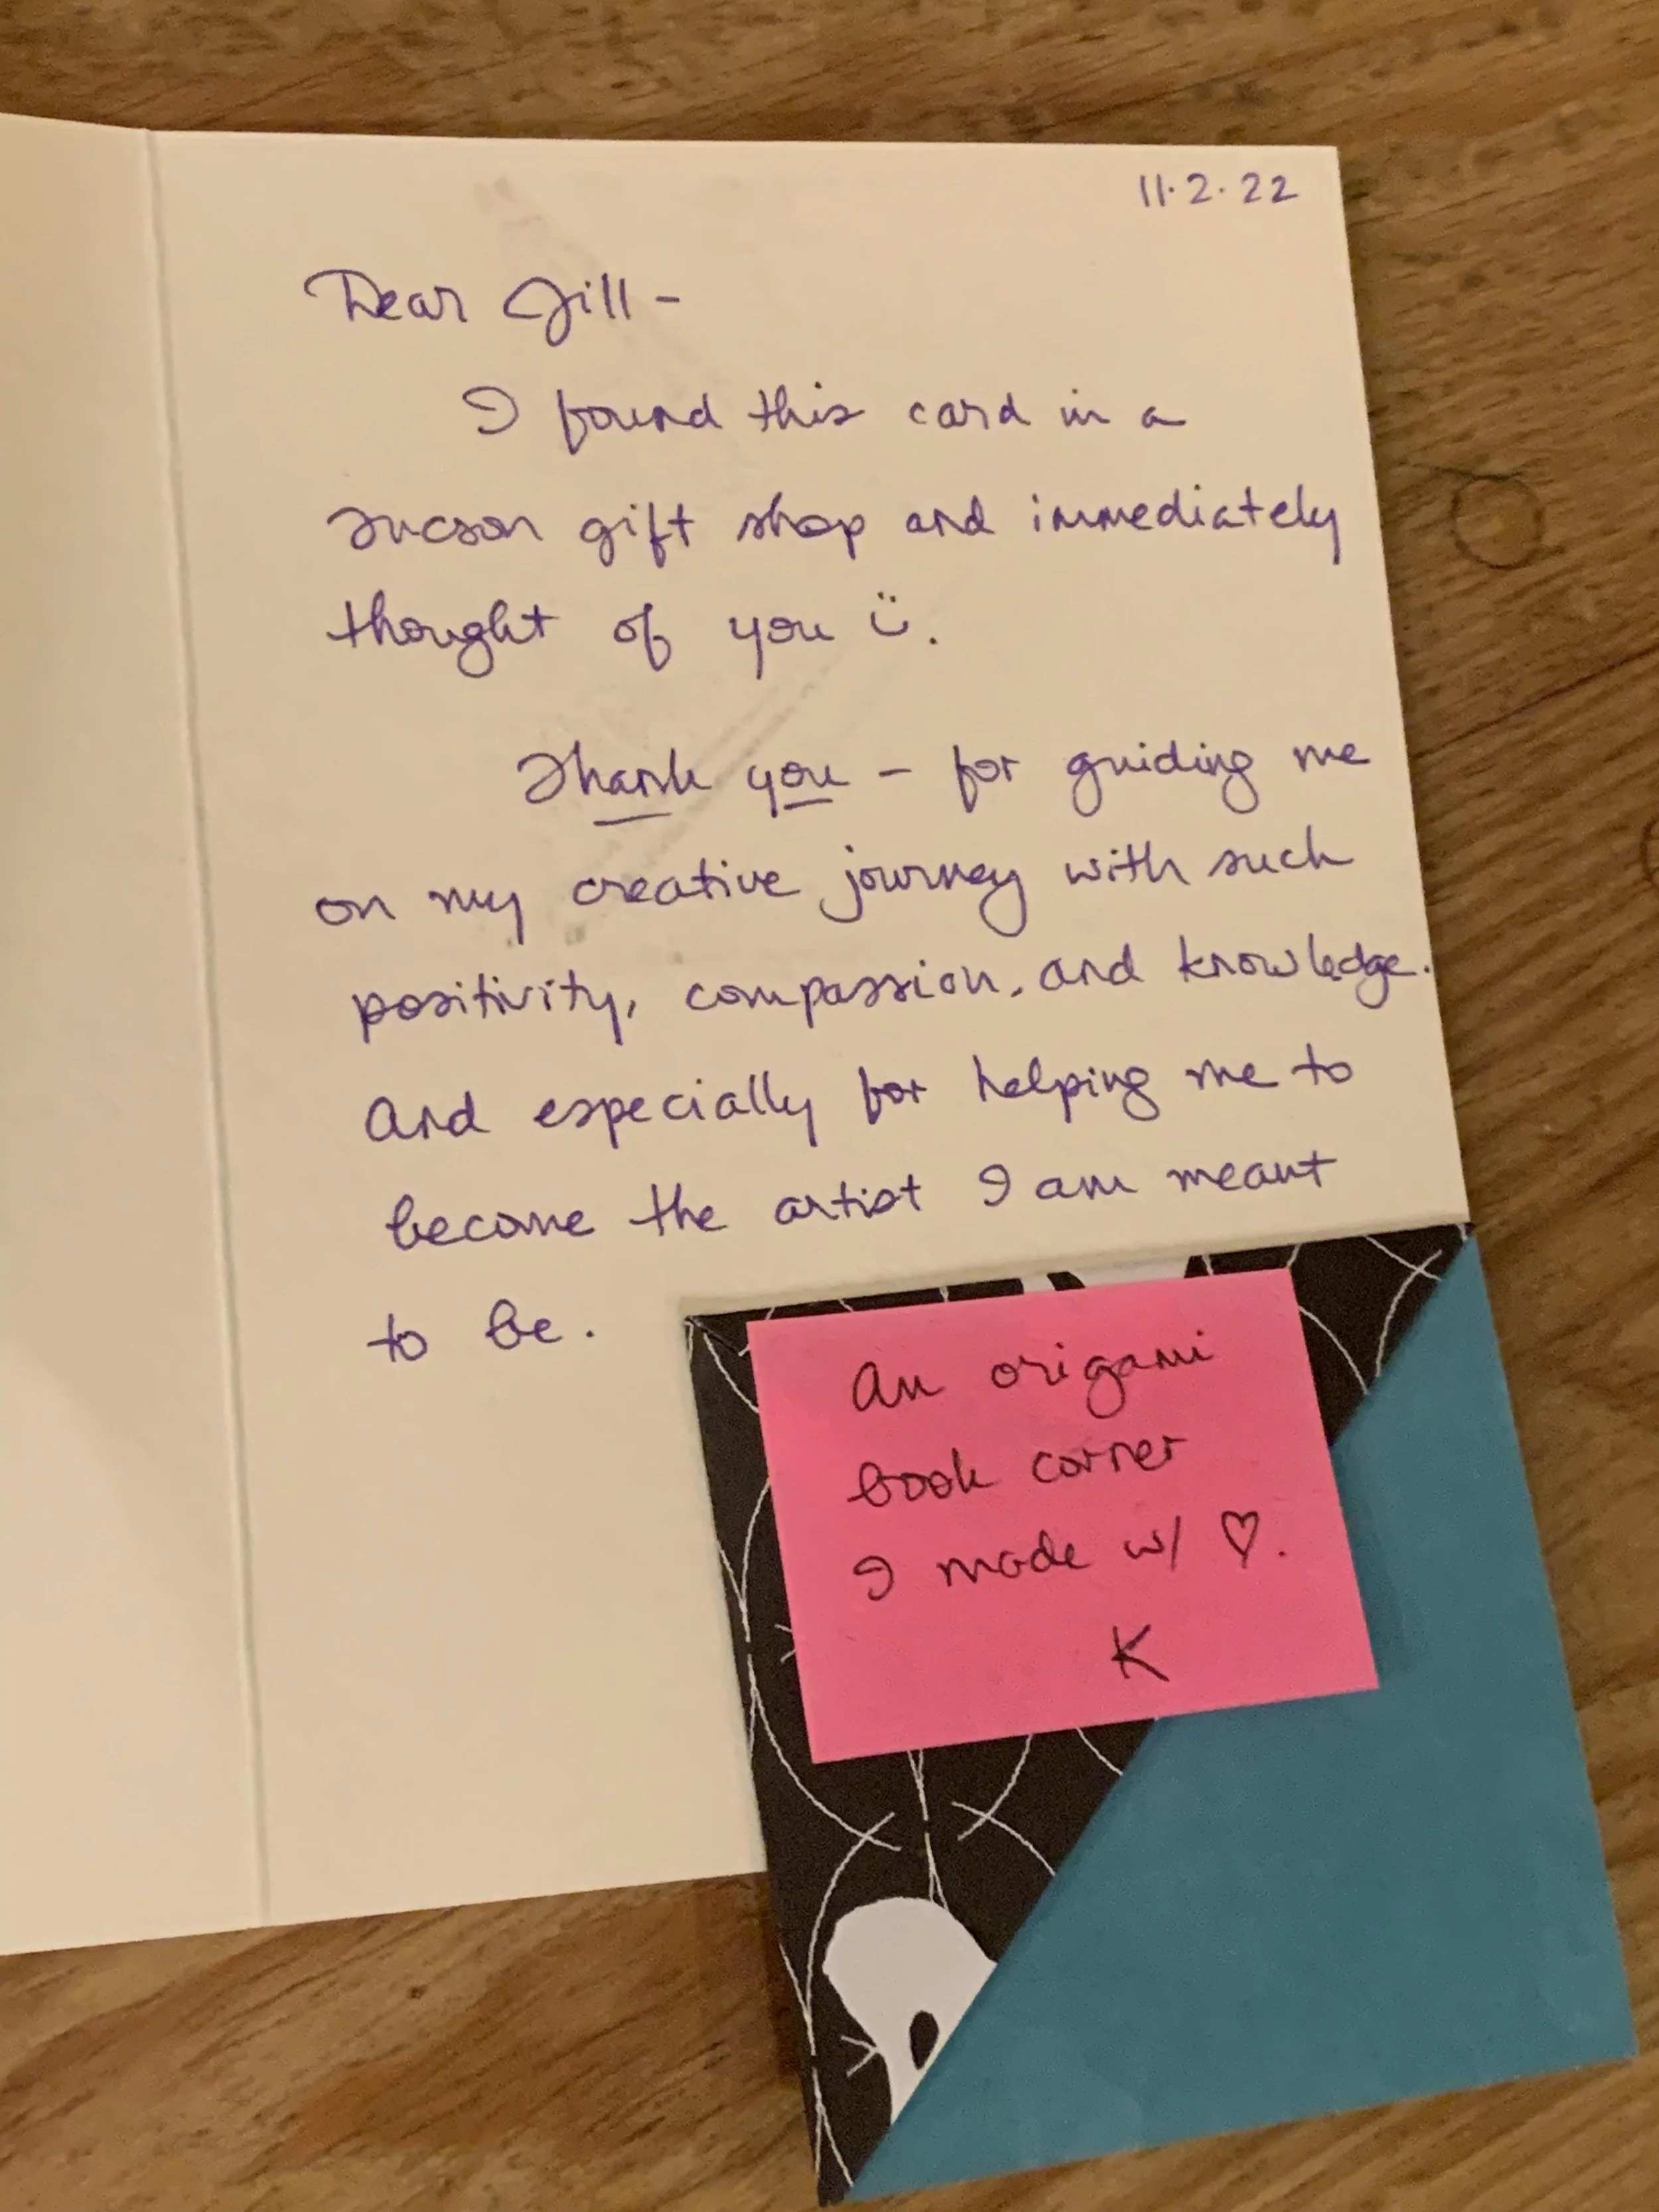 11.2.22
Dear Jill-
I found this card in a
Tucson gift shop and immediately
thought of you ü.
Thank you - for guiding me
on my creative journey with such
positivity, compassion, and knowledge.
And especially for helping me to
become the artist I am meant
to be.
An origami
book corner
I made w/ ♡.
K